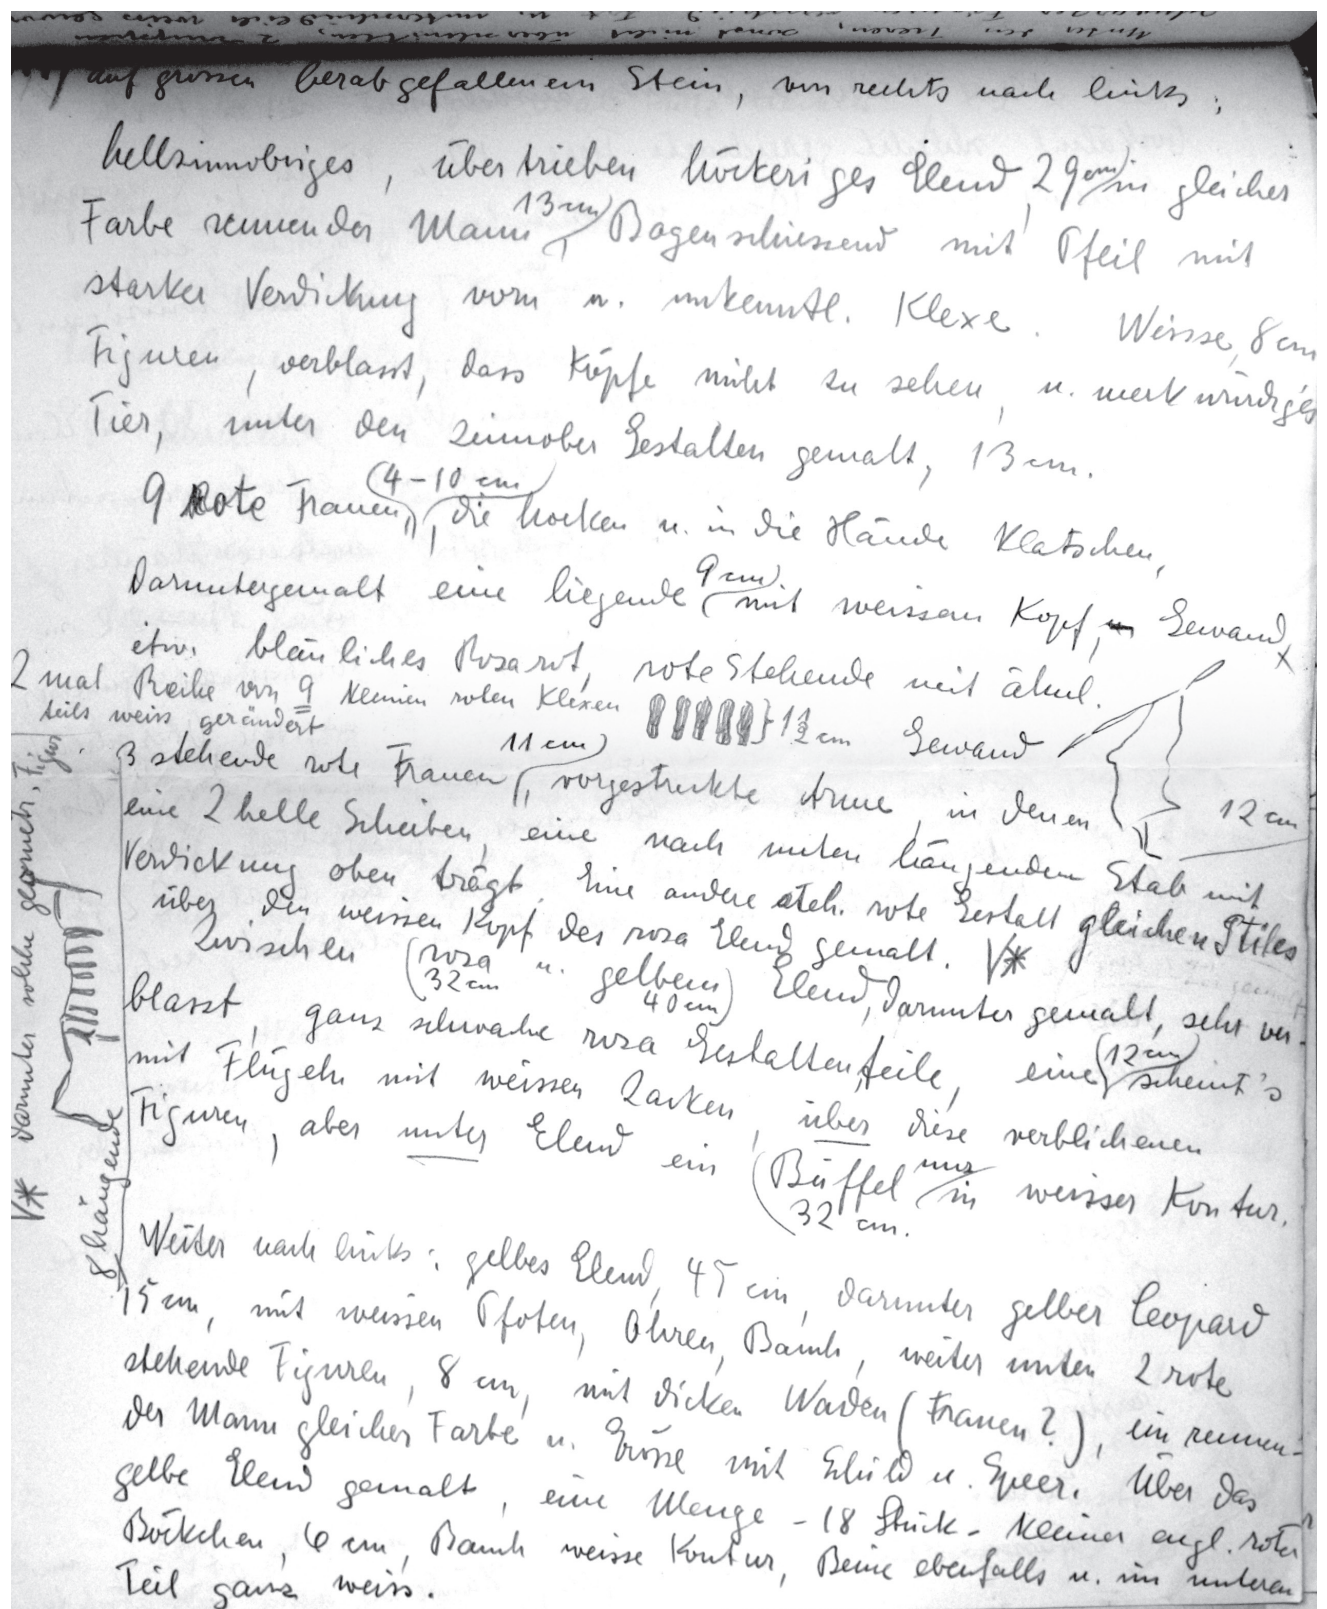 auf grossen herabgefallenem Stein, von rechts nach links,
hellzinnobriges, übertrieben höckeriges Elend, 29 cm, in gleicher
Farbe rennender Mann (13 cm), Bogenschiessend mit Pfeil mit
starker Verdickung vorn u. unkenntl. Klexe. Weisse, 8 cm
Figuren, verblasst, dass Köpfe nicht zu sehen, u. merkwürdiges
Tier, unter den Zinnober Gestalten gemalt, 13 cm.
9 Rote Frauen, (4-10 cm), die hocken u. in die Hände Klatschen,
Daruntergemalt eine liegende (9 cm) mit weissem Kopf, Gewand
etw. bläuliches Rosarot, rote Stehende mit ähnl.
2 mal Reihe von 9 kleinen roten Klexen } 1½ cm Gewand
teils weiss gerändert
3 stehende rote Frauen (11 cm), vorgestreckte Arme, in denen
12 cm
eine 2 helle Scheiben, eine nach unten hängenden Stab mit
Verdickung oben trägt. Eine andere steh. rote Gestalt gleichen Stiles
über den weissen Kopf des rosa Elend gemalt. V*
Zwischen (rosa u. gelbem) Elend, darunter gemalt, sehr ver-
32 cm 40 cm
blasst, ganz schwache rosa Gestaltenteile, eine (12 cm) scheint's
mit Flügeln mit weissen Zacken, über diese verblichenen
Figuren, aber unter Elend ein (Büffel nur in weisser Kontur.
32 cm.
Weiter nach links: gelbes Elend, 45 cm, darunter gelber Leopard
15 cm, mit weissen Pfoten, Ohren, Bauch, weiter unten 2 rote
stehende Figuren, 8 cm, mit dicken Waden (Frauen?), ein rennen-
der Mann gleicher Farbe u. Grösse mit Schild u. Speer. Über das
gelbe Elend gemalt, eine Menge - 18 Stück - kleiner engl. roter
Böckchen, 6 cm, Bauch weisse Kontur, Beine ebenfalls u. im unteren
Teil ganz weiss.
V* darunter solche geometr. Figur
8 hängende